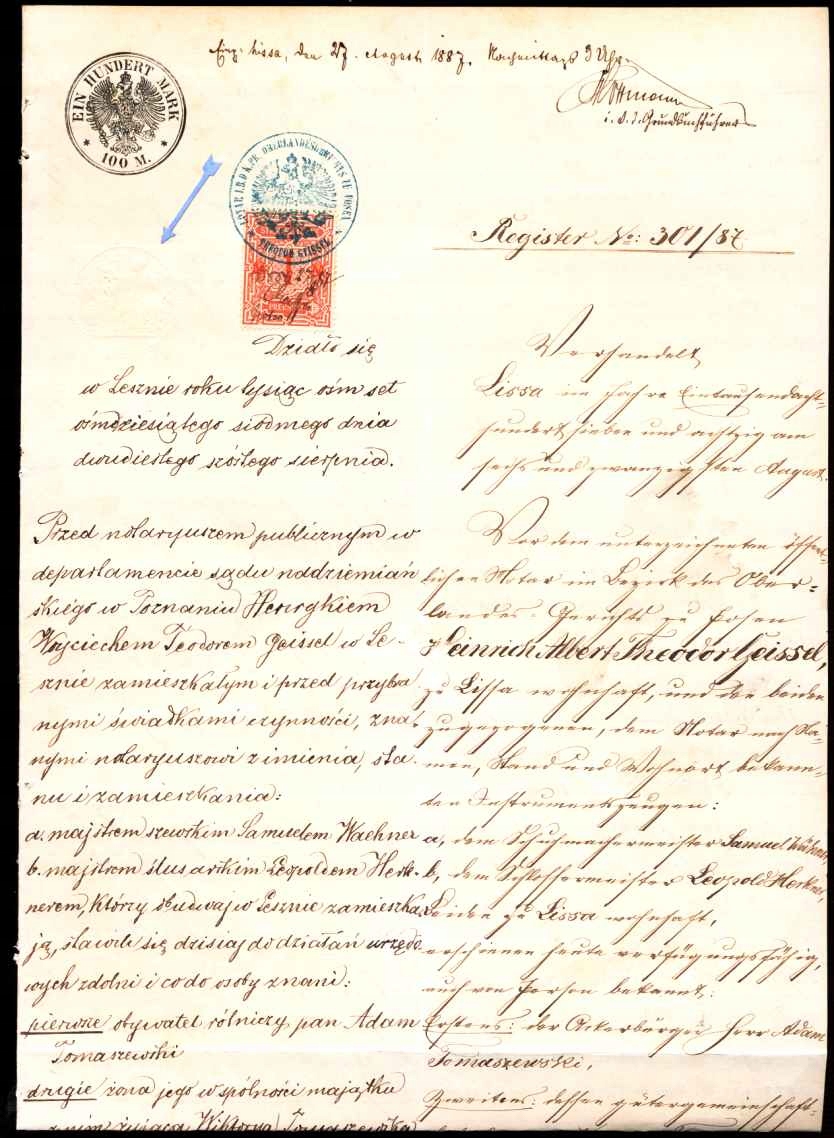 Eing. Lissa, den 27. August 1887, Nachmittags 3 Uhr.
i. V. d. Grundbuchführer
EIN HUNDERT MARK
* 100 M. *
NOTAR I. B. D. K. PR. OBERLANDESGERICHTS ZU POSEN
THEODOR GEISSEL
Register No: 301/87
Działo się
w Lesznie roku tysiąc ośm set
ośmdziesiątego siódmego dnia
dwudiestego szóstego sierpnia.
Przed notaryuszem publicznym w
departamencie sądu nadziemiań
skiégo w Poznaniu Henrykiem
Wojciechem Teodorem Geissel w Le-
sznie zamieszkałym i przed przybra
nymi świadkami czynności, zna-
nymi notaryuszowi z imienia, sta-
nu i zamieszkania:
a. majstrem szewskim Samuelem Waehner
b. majstrem ślusarskim Leopoldem Herk-
nerem, którzy obudwaj w Lesznie zamieszka
ją, stawili się dzisiaj do działań urzędo
wych zdolni i co do osoby znani:
pierwsze obywatel rólniczy pan Adam
Tomaszewski
drugie żona jego w spólności majątku
z nim żyjąca Wiktorya Tomaszewska
Verhandelt
Lissa im Jahre Eintausendacht-
hundert sieben und achtzig am
sechs und zwanzigsten August.
Vor dem unterzeichneten öffent-
lichen Notar im Bezirk des Ober-
landes-Gerichts zu Posen
Heinrich Albert Theodor Geissel,
zu Lissa wohnhaft, und den beiden
zugezogenen, dem Notar nach Na-
men, Stand und Wohnort bekann-
ten Instrumentszeugen:
a, dem Schuhmachermeister Samuel Wähner,
b, dem Schlossermeister Leopold Herkner,
beiden zu Lissa wohnhaft,
erschienen heute verfügungsfähig,
auch von Person bekannt:
Erstens: der Ackerbürger Herr Adam
Tomaszewski,
Zweitens: dessen gütergemeinschaft-